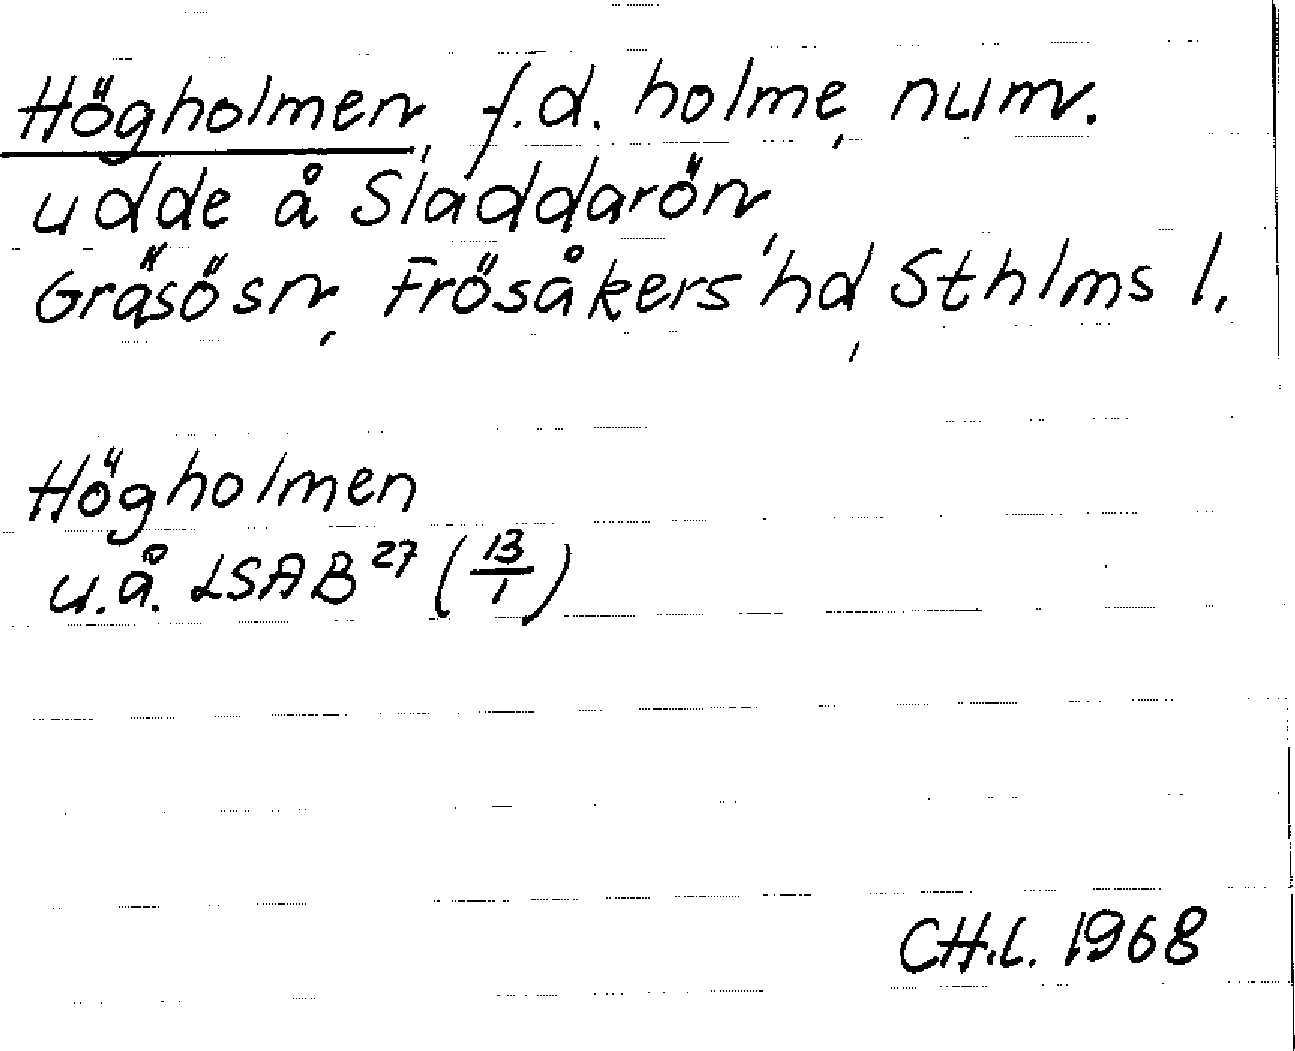 Högholmen, f.d. holme, num.
udde å Sladdarön,
Gräsö sn, Frösåkers hd, Sthlms l.
Högholmen
u.å. LSA B 27 (13/1)
CH.L. 1968